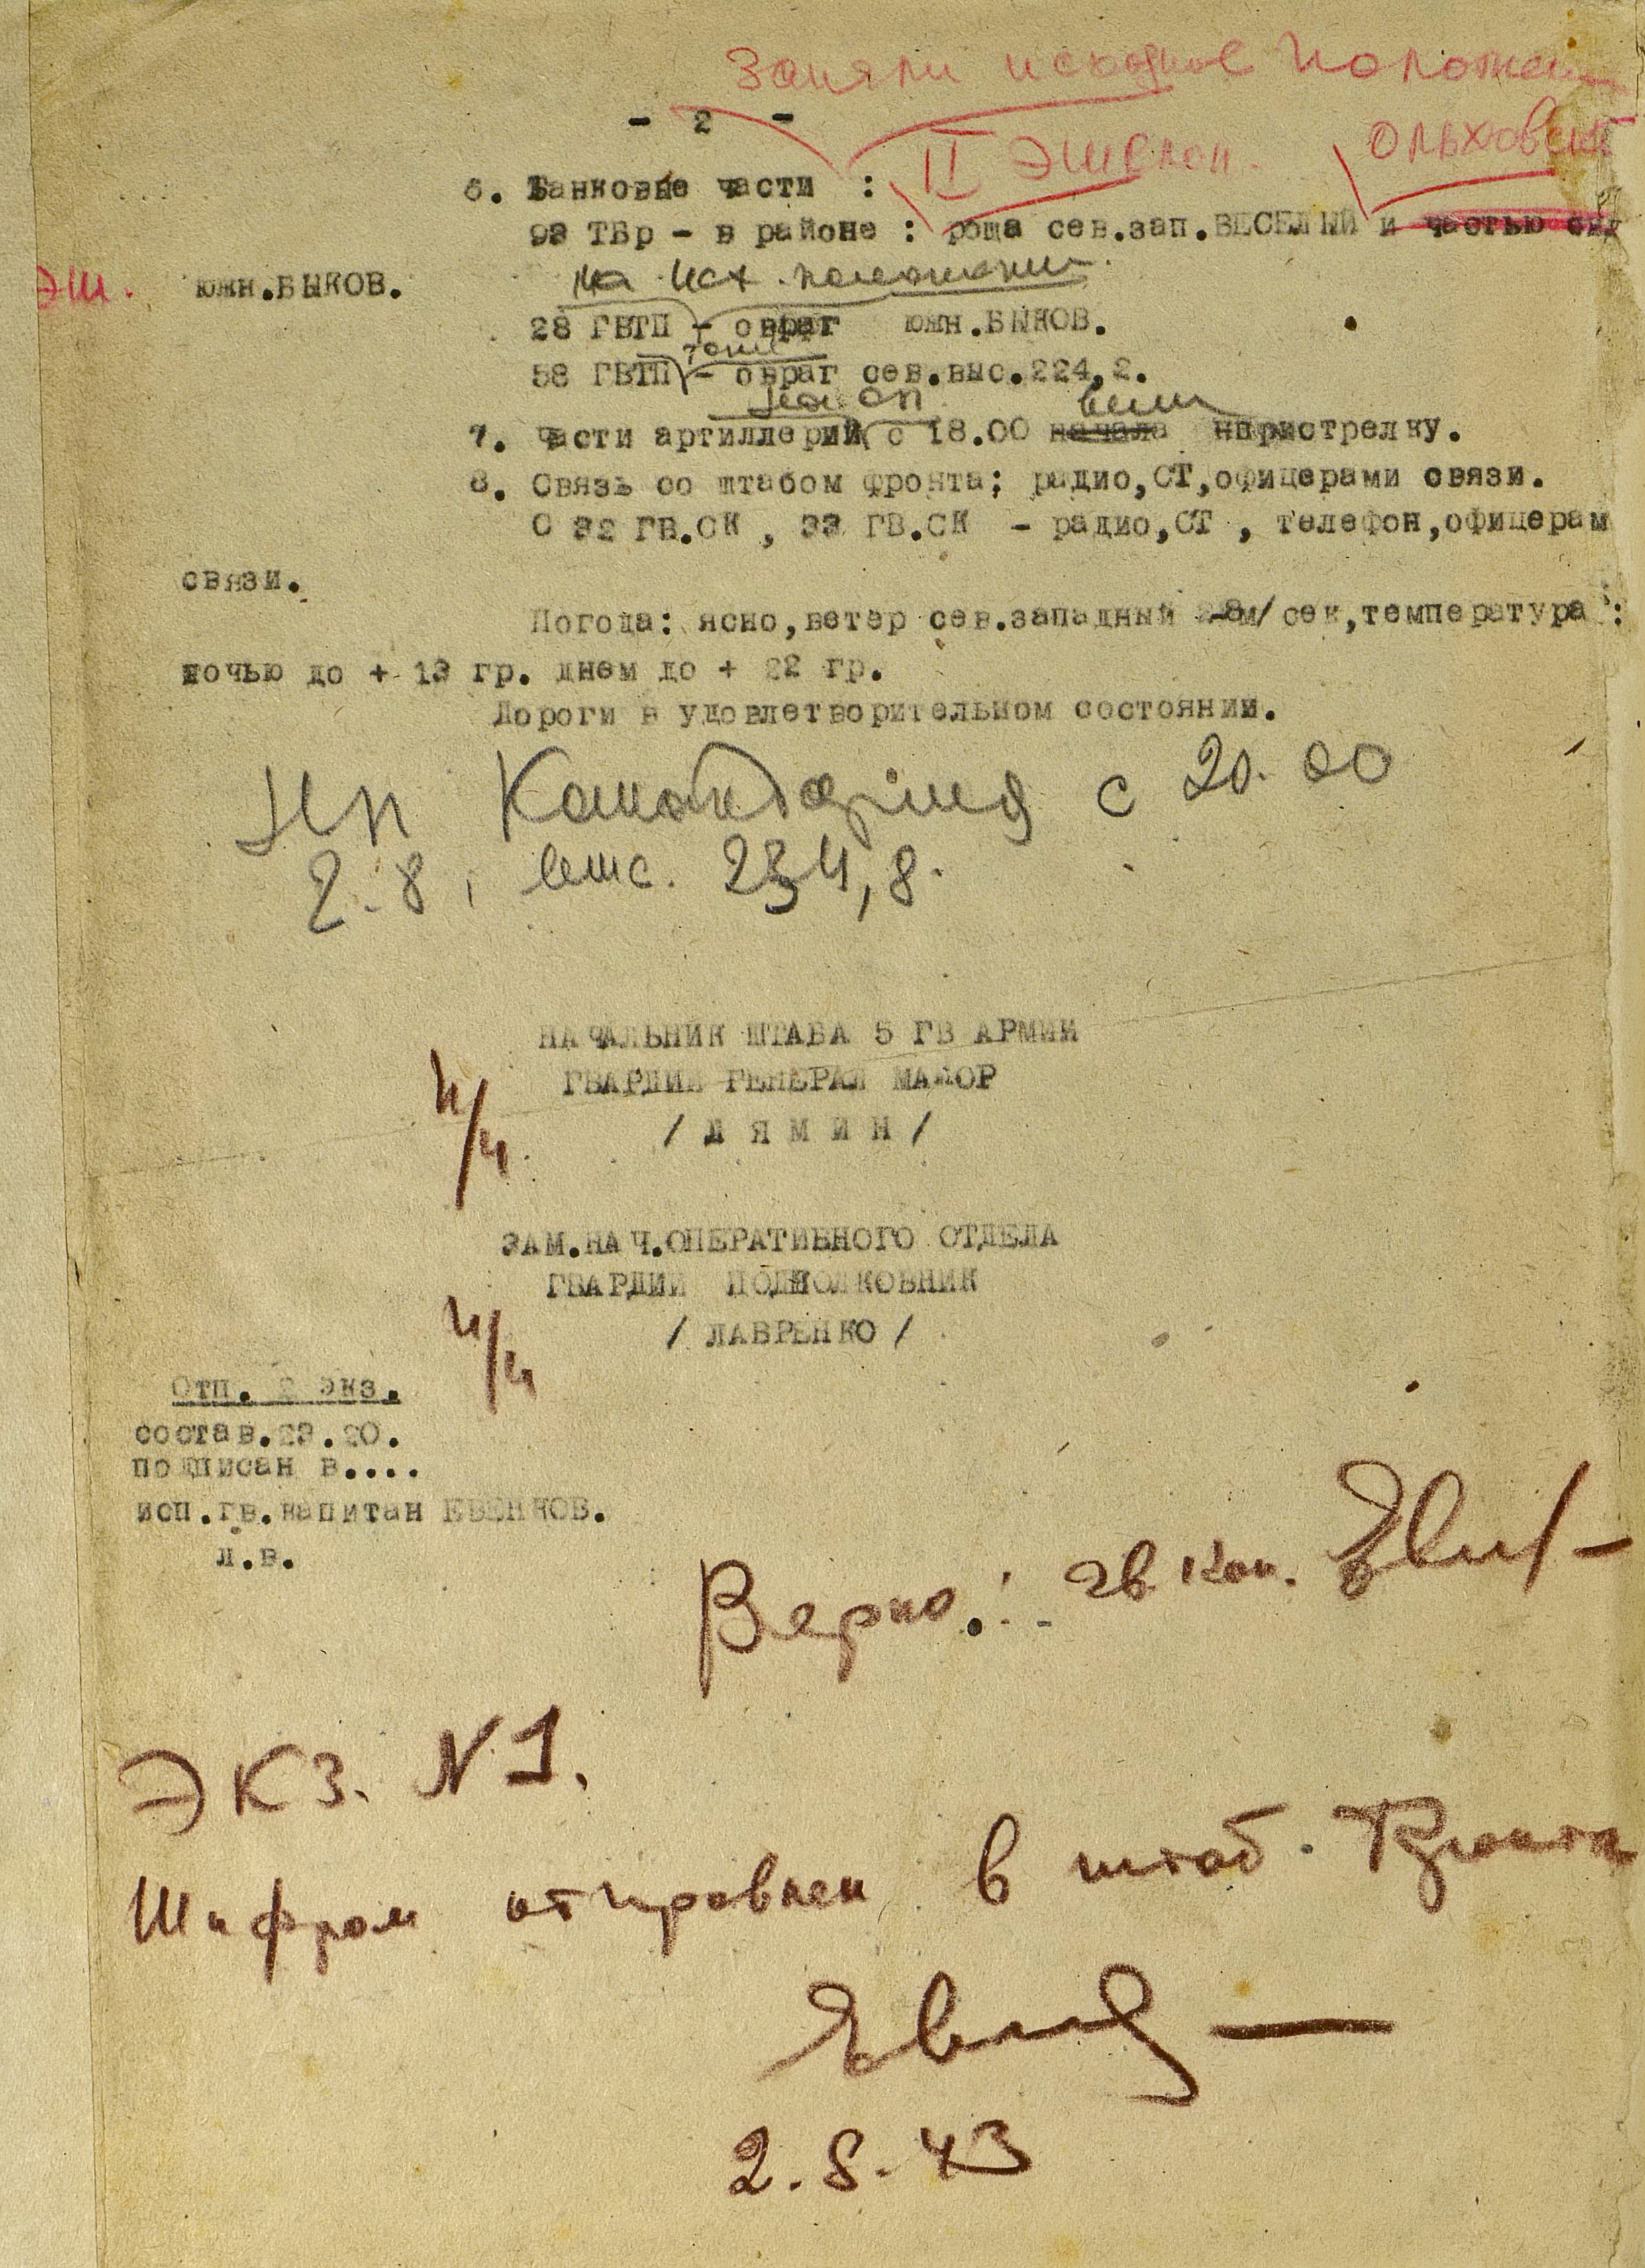 Заняли исходное положен
- 2 -
II эшелон. Ольховский
6. Танковые части :
93 ТБр - в районе : роща сев.зап.ВЕСЕЛЫЙ и частью сил
эш. южн.БЫКОВ.
на исх. положении.
28 ГВТП - овраг южн.БЫКОВ.
тоже
58 ГВТП - овраг сев.выс.224,2.
на ОП вели
7. Части артиллерий с 18.00 начала нпристрелку.
8. Связь со штабом фронта; радио,СТ,офицерами связи.
С 32 ГВ.СК , 33 ГВ.СК - радио,СТ , телефон,офицерам
связи.
Погода: ясно,ветер сев.западный -8м/сек,температура :
ночью до + 13 гр. днем до + 22 гр.
Дороги в удовлетворительном состоянии.
НП Командарма с 20.00
2.8, выс. 234,8.
НАЧАЛЬНИК ШТАБА 5 ГВ АРМИИ
ГВАРДИИ ГЕНЕРАЛ МАЙОР
/ Л Я М И Н /
п/п.
ЗАМ.НАЧ.ОПЕРАТИВНОГО ОТДЕЛА
ГВАРДИИ ПОДПОЛКОВНИК
/ ЛАВРЕНКО /
п/п
Отп. 2 экз.
состав.23.20.
подписан в....
исп.гв.капитан ЕВЕНКОВ.
л.в.
Верно: гв. кап.
Экз. N 1.
Шифром отправлен в штаб фронта
2.8.43